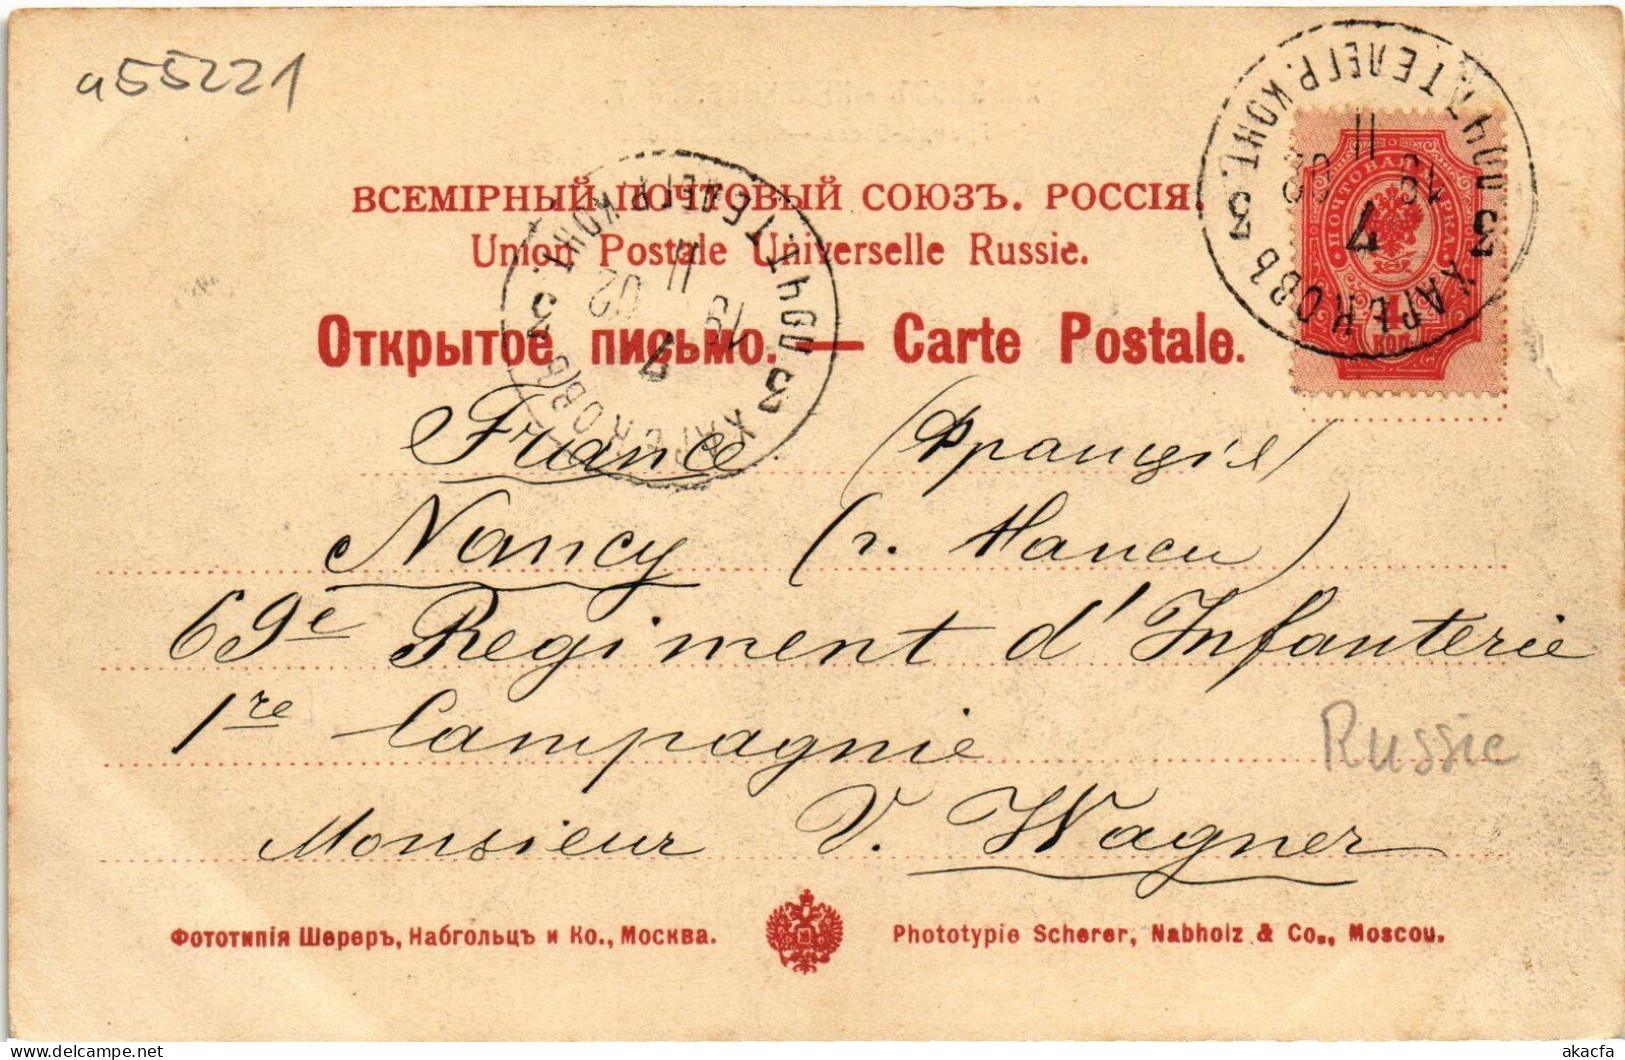 a55221
ВСЕМІРНЫЙ ПОЧТОВЫЙ СОЮЗЪ. РОССІЯ.
Union Postale Universelle Russie.
Открытое письмо. — Carte Postale.
ХАРЬКОВЪ 3 ПОЧТ. ТЕЛЕГР. КОНТ. 3
19 II 02
7
ХАРЬКОВЪ 3 ПОЧТ. ТЕЛЕГР. КОНТ. 3
19 II 02
7
ПОЧТОВАЯ МАРКА
КОП.
France (Франція)
Nancy (г. Нанси)
69e Regiment d'Infanterie
1re Compagnie
Russie
Monsieur V. Wagner
Фототипія Шереръ, Набгольцъ и Ко., Москва.
Phototypie Scherer, Nabholz & Co., Moscou.
akacfa